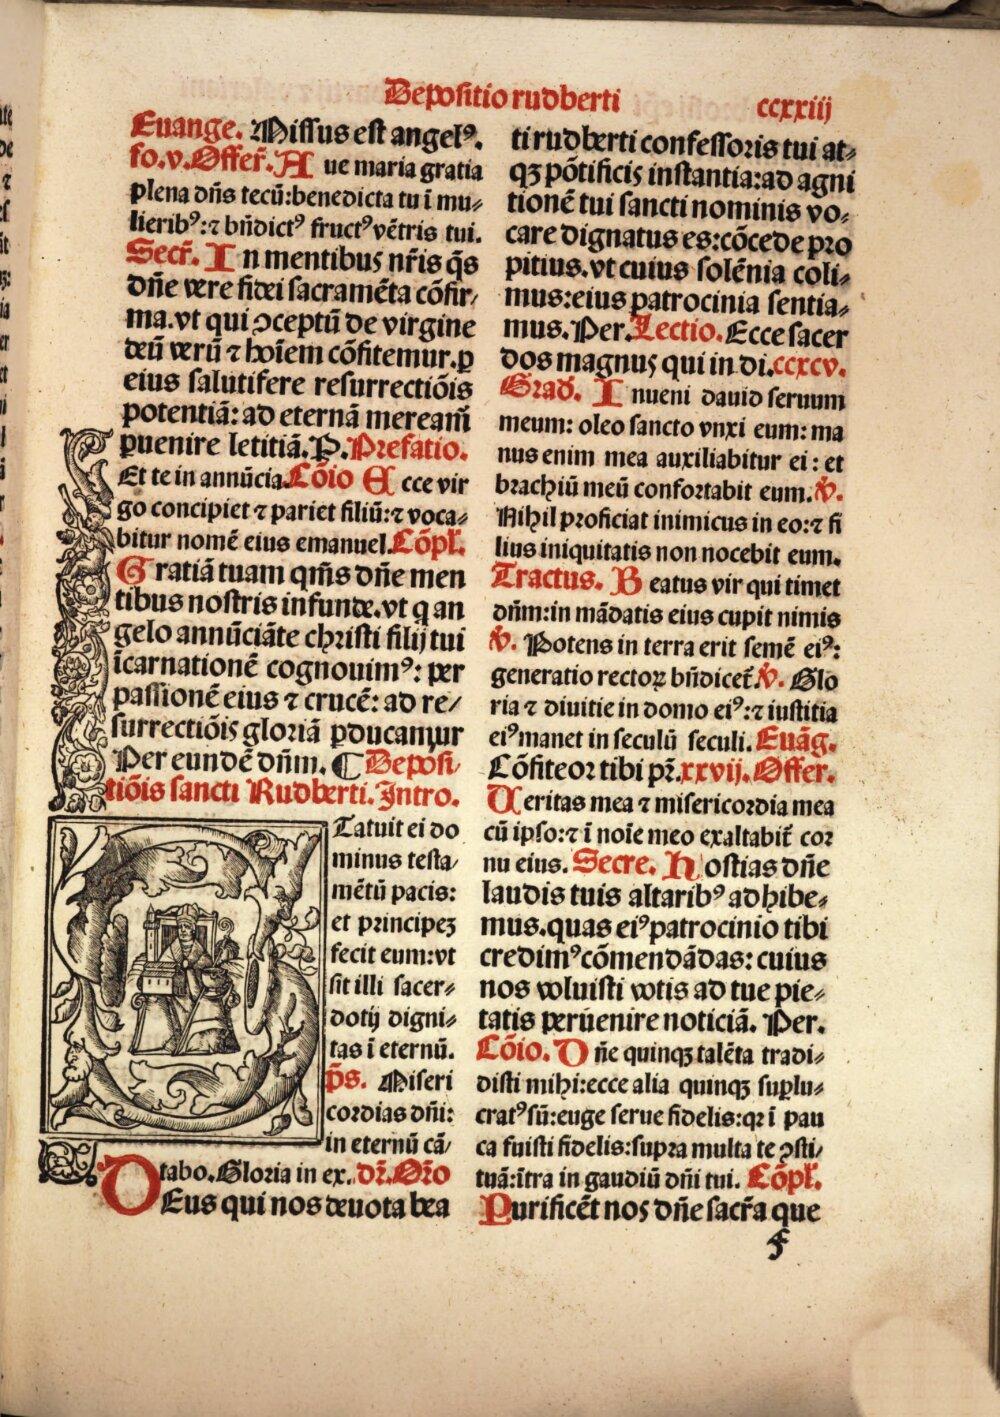 Depositio rudberti
ccxxiij
Euange. Missus est angelꝰ.
fo.v. Offer̃. Aue maria gratia
plena dñs tecũ: benedicta tu ĩ mu⸗
lieribꝰ: ⁊ bñdictꝰ fructꝰ vẽtris tui.
Secr̃. In mentibus nr̃is q̃s
dñe vere fidei sacramẽta cõfir⸗
ma. vt qui ↄceptũ de virgine
deũ verũ ⁊ hoĩem cõfitemur. ꝑ
eius salutifere resurrectiõis
potentiã: ad eternã meream̃
ꝑuenire letitiã. P. Prefatio.
Et te in annũcia. Cõio Ecce vir
go concipiet ⁊ pariet filiũ: ⁊ voca⸗
bitur nomẽ eius emanuel. Cõpl̃.
Gratiã tuam qm̃s dñe men
tibus nostris infunde. vt q an
gelo annũciãte christi filij tui
ĩcarnationẽ cognouimꝰ: per
passionẽ eius ⁊ crucẽ: ad re⸗
surrectiõis gloriã ꝑducamur
Per eundẽ dñm. ⸿ Deposi⸗
tiõis sancti Rudberti. Intro.
Statuit ei do
minus testa⸗
mẽtũ pacis:
et principeꝫ
fecit eum: vt
sit illi sacer⸗
dotij digni⸗
tas ĩ eternũ.
p̃s. Miseri
cordias dñi:
in eternũ cã⸗
tabo. Gloria in ex. dr̃. Or̃o
DEus qui nos deuota bea
ti rudberti confessoris tui at⸗
qꝫ põtificis instantia: ad agni
tionẽ tui sancti nominis vo⸗
care dignatus es: cõcede pro
pitius. vt cuius solẽnia coli⸗
mus: eius patrocinia sentia⸗
mus. Per. Lectio. Ecce sacer
dos magnus qui in di. ccxcv.
Grad̃. Inueni dauid seruum
meum: oleo sancto vnxi eum: ma
nus enim mea auxiliabitur ei: et
brachiũ meũ confortabit eum. ℣.
Nihil proficiat inimicus in eo: ⁊ fi
lius iniquitatis non nocebit eum.
Tractus. Beatus vir qui timet
dñm: in mãdatis eius cupit nimis
℣. Potens in terra erit semẽ eiꝰ:
generatio rectoꝝ bñdicet̃. ℣. Glo
ria ⁊ diuitie in domo eiꝰ: ⁊ iustitia
eiꝰ manet in seculũ seculi. Euãg.
Cõfiteor tibi pr̃. xxvij. Offer.
Ueritas mea ⁊ misericordia mea
cũ ipso: ⁊ ĩ noĩe meo exaltabit̃ cor
nu eius. Secre. Hostias dñe
laudis tuis altaribꝰ adhibe⸗
mus. quas eiꝰ patrocinio tibi
credimꝰ cõmendãdas: cuius
nos voluisti votis ad tue pie⸗
tatis peruenire noticiã. Per.
Cõio. Dñe quinqꝫ talẽta tradi⸗
disti mihi: ecce alia quinqꝫ suꝑlu⸗
cratꝰ sũ: euge serue fidelis: qr ĩ pau
ca fuisti fidelis: supra multa te ↄsti⸗
tuã: ĩtra in gaudiũ dñi tui. Cõpl̃.
Purificẽt nos dñe sacr̃a que